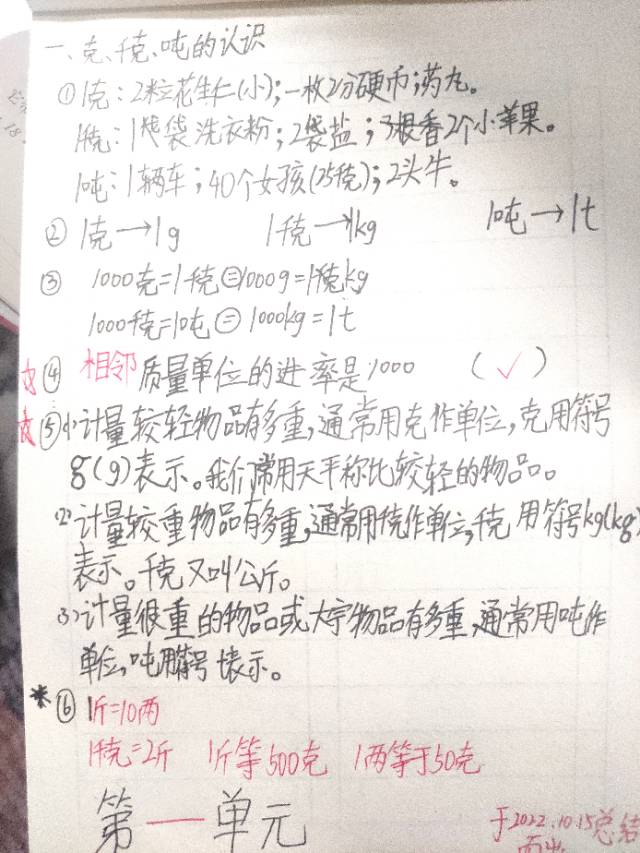 一、克、千克、吨的认识
①1克：2粒花生仁(小)；一枚2分硬币；药丸。
1千克：1袋洗衣粉；2袋盐；3根香2个小苹果。
1吨：1辆车；40个女孩(25千克)；2头牛。
② 1克→1g 1千克→1kg 1吨→1t
③ 1000克=1千克 = 1000g=1kg
1000千克=1吨 = 1000kg=1t
☆④ 相邻质量单位的进率是1000 (✓)
☆⑤(1)计量较轻物品有多重，通常用克作单位，克用符号
g(g)表示。我们常用天平称比较轻的物品。
(2)计量较重物品有多重，通常用千克作单位，千克用符号kg(kg)
表示。千克又叫公斤。
(3)计量很重的物品或大宗物品有多重，通常用吨作
单位，吨用符号t表示。
*⑥ 1斤=10两
1千克=2斤 1斤等500克 1两等于50克
第一单元
于2022.10.15总结